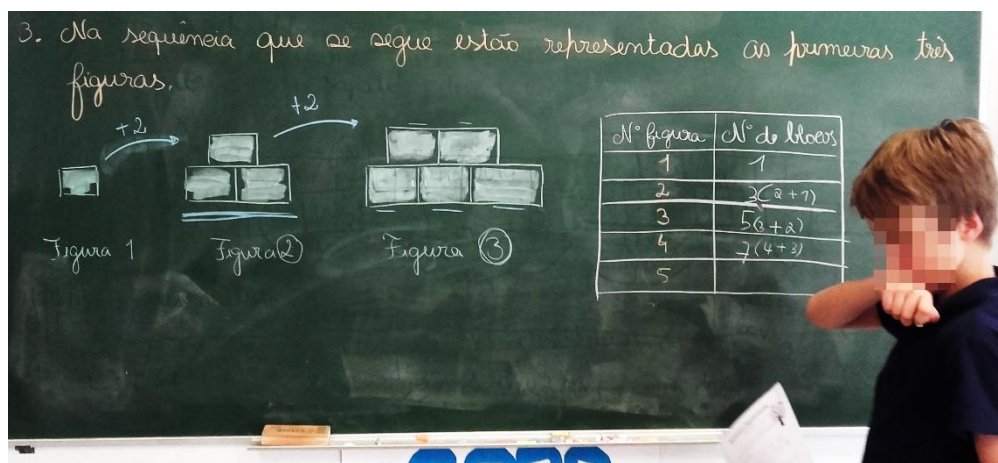 3. Na sequência que se segue estão representadas as primeiras três
figuras.
+2
+2
Figura 1
Figura 2
Figura 3
Nº figura Nº de blocos
1 1
2 3(2+1)
3 5(3+2)
4 7(4+3)
5